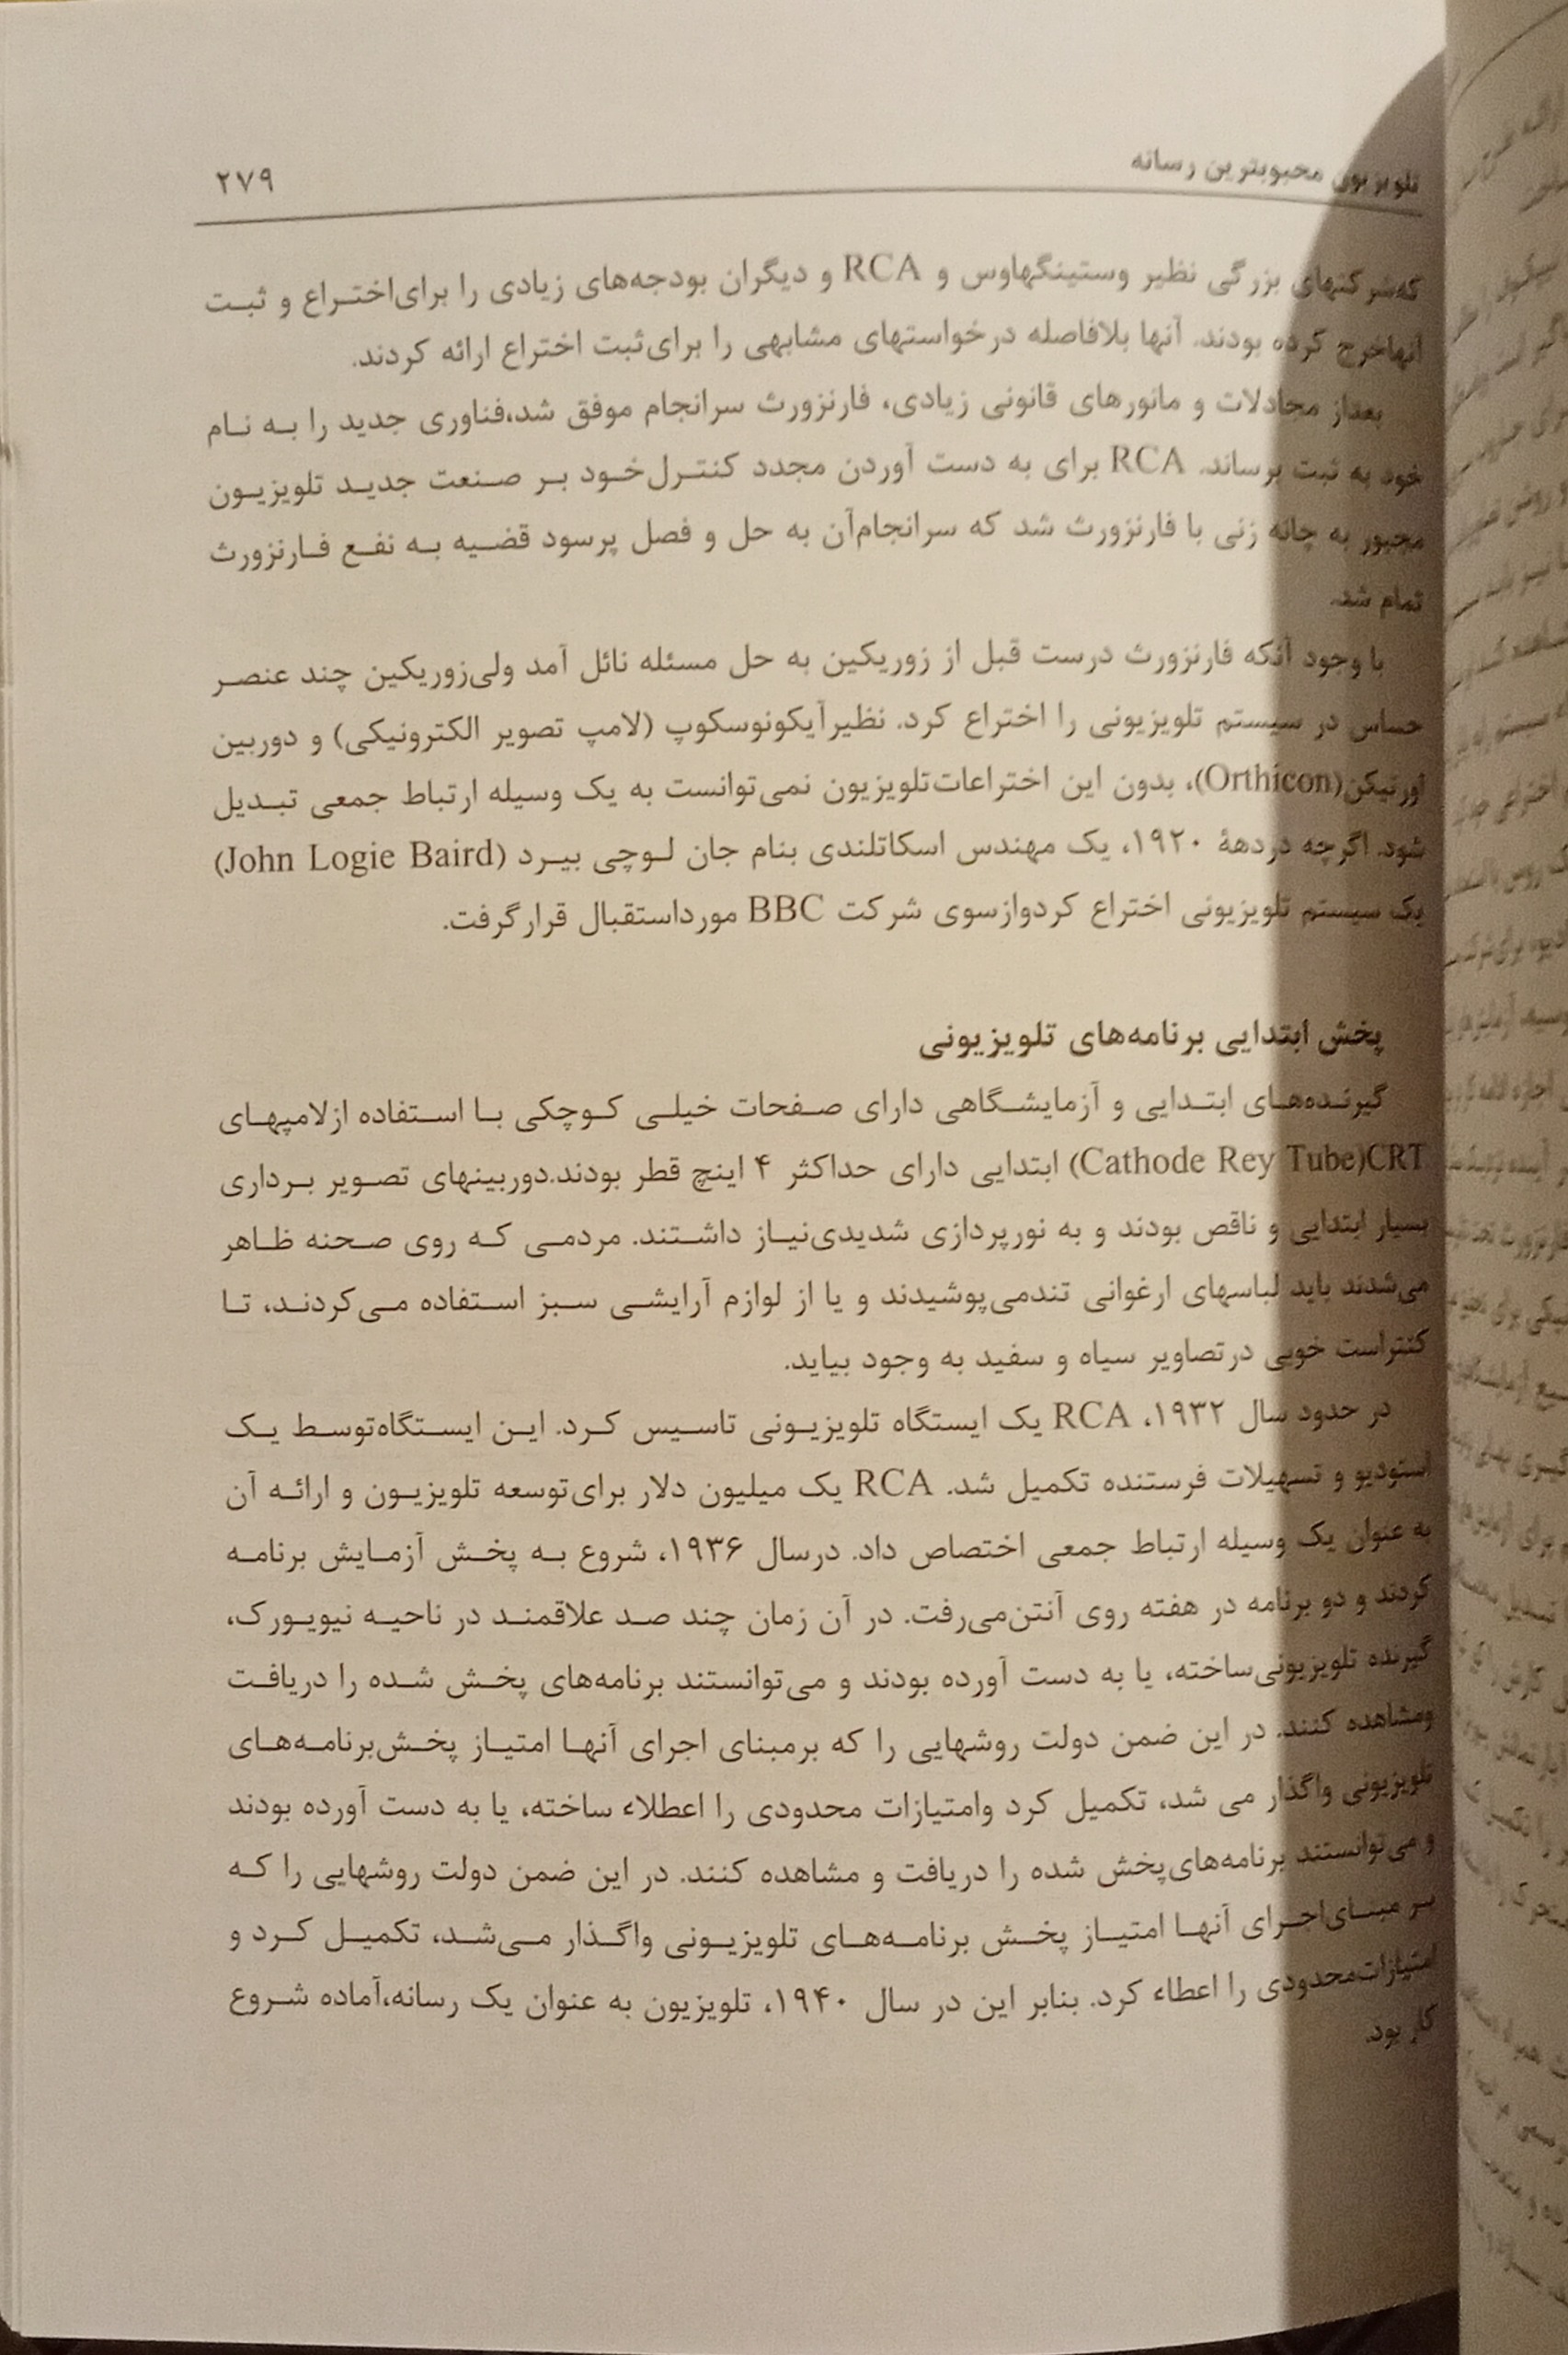 تلویزیون محبوبترین رسانه
۲۷۹
که‌شرکتهای بزرگی نظیر وستینگهاوس و RCA و دیگران بودجه‌های زیادی را برای‌اختراع و ثبت
آنهاخرج کرده بودند. آنها بلافاصله درخواستهای مشابهی را برای‌ثبت اختراع ارائه کردند.
بعداز مجادلات و مانورهای قانونی زیادی، فارنزورث سرانجام موفق شد،فناوری جدید را به نام
خود به ثبت برساند. RCA برای به دست آوردن مجدد کنترل‌خود بر صنعت جدید تلویزیون
مجبور به چانه زنی با فارنزورث شد که سرانجام‌آن به حل و فصل پرسود قضیه به نفع فارنزورث
تمام شد.
با وجود آنکه فارنزورث درست قبل از زوریکین به حل مسئله نائل آمد ولی‌زوریکین چند عنصر
حساس در سیستم تلویزیونی را اختراع کرد. نظیرآیکونوسکوپ (لامپ تصویر الکترونیکی) و دوربین
اورتیکن(Orthicon)، بدون این اختراعات‌تلویزیون نمی‌توانست به یک وسیله ارتباط جمعی تبدیل
شود. اگرچه دردههٔ ۱۹۲۰، یک مهندس اسکاتلندی بنام جان لوچی بیرد (John Logie Baird)
یک سیستم تلویزیونی اختراع کردوازسوی شرکت BBC مورداستقبال قرارگرفت.
پخش ابتدایی برنامه‌های تلویزیونی
گیرنده‌های ابتدایی و آزمایشگاهی دارای صفحات خیلی کوچکی با استفاده ازلامپهای
CRT(Cathode Rey Tube) ابتدایی دارای حداکثر ۴ اینچ قطر بودند.دوربینهای تصویر برداری
بسیار ابتدایی و ناقص بودند و به نورپردازی شدیدی‌نیاز داشتند. مردمی که روی صحنه ظاهر
می‌شدند باید لباسهای ارغوانی تندمی‌پوشیدند و یا از لوازم آرایشی سبز استفاده می‌کردند، تا
کنتراست خوبی درتصاویر سیاه و سفید به وجود بیاید.
در حدود سال ۱۹۳۲، RCA یک ایستگاه تلویزیونی تاسیس کرد. این ایستگاه‌توسط یک
استودیو و تسهیلات فرستنده تکمیل شد. RCA یک میلیون دلار برای‌توسعه تلویزیون و ارائه آن
به عنوان یک وسیله ارتباط جمعی اختصاص داد. درسال ۱۹۳۶، شروع به پخش آزمایش برنامه
کردند و دو برنامه در هفته روی آنتن‌می‌رفت. در آن زمان چند صد علاقمند در ناحیه نیویورک،
گیرنده تلویزیونی‌ساخته، یا به دست آورده بودند و می‌توانستند برنامه‌های پخش شده را دریافت
ومشاهده کنند. در این ضمن دولت روشهایی را که برمبنای اجرای آنها امتیاز پخش‌برنامه‌های
تلویزیونی واگذار می شد، تکمیل کرد وامتیازات محدودی را اعطلاء ساخته، یا به دست آورده بودند
و می‌توانستند برنامه‌های‌پخش شده را دریافت و مشاهده کنند. در این ضمن دولت روشهایی را که
بر مبنای‌اجرای آنها امتیاز پخش برنامه‌های تلویزیونی واگذار می‌شد، تکمیل کرد و
امتیازات‌محدودی را اعطاء کرد. بنابر این در سال ۱۹۴۰، تلویزیون به عنوان یک رسانه،آماده شروع
کار بود.